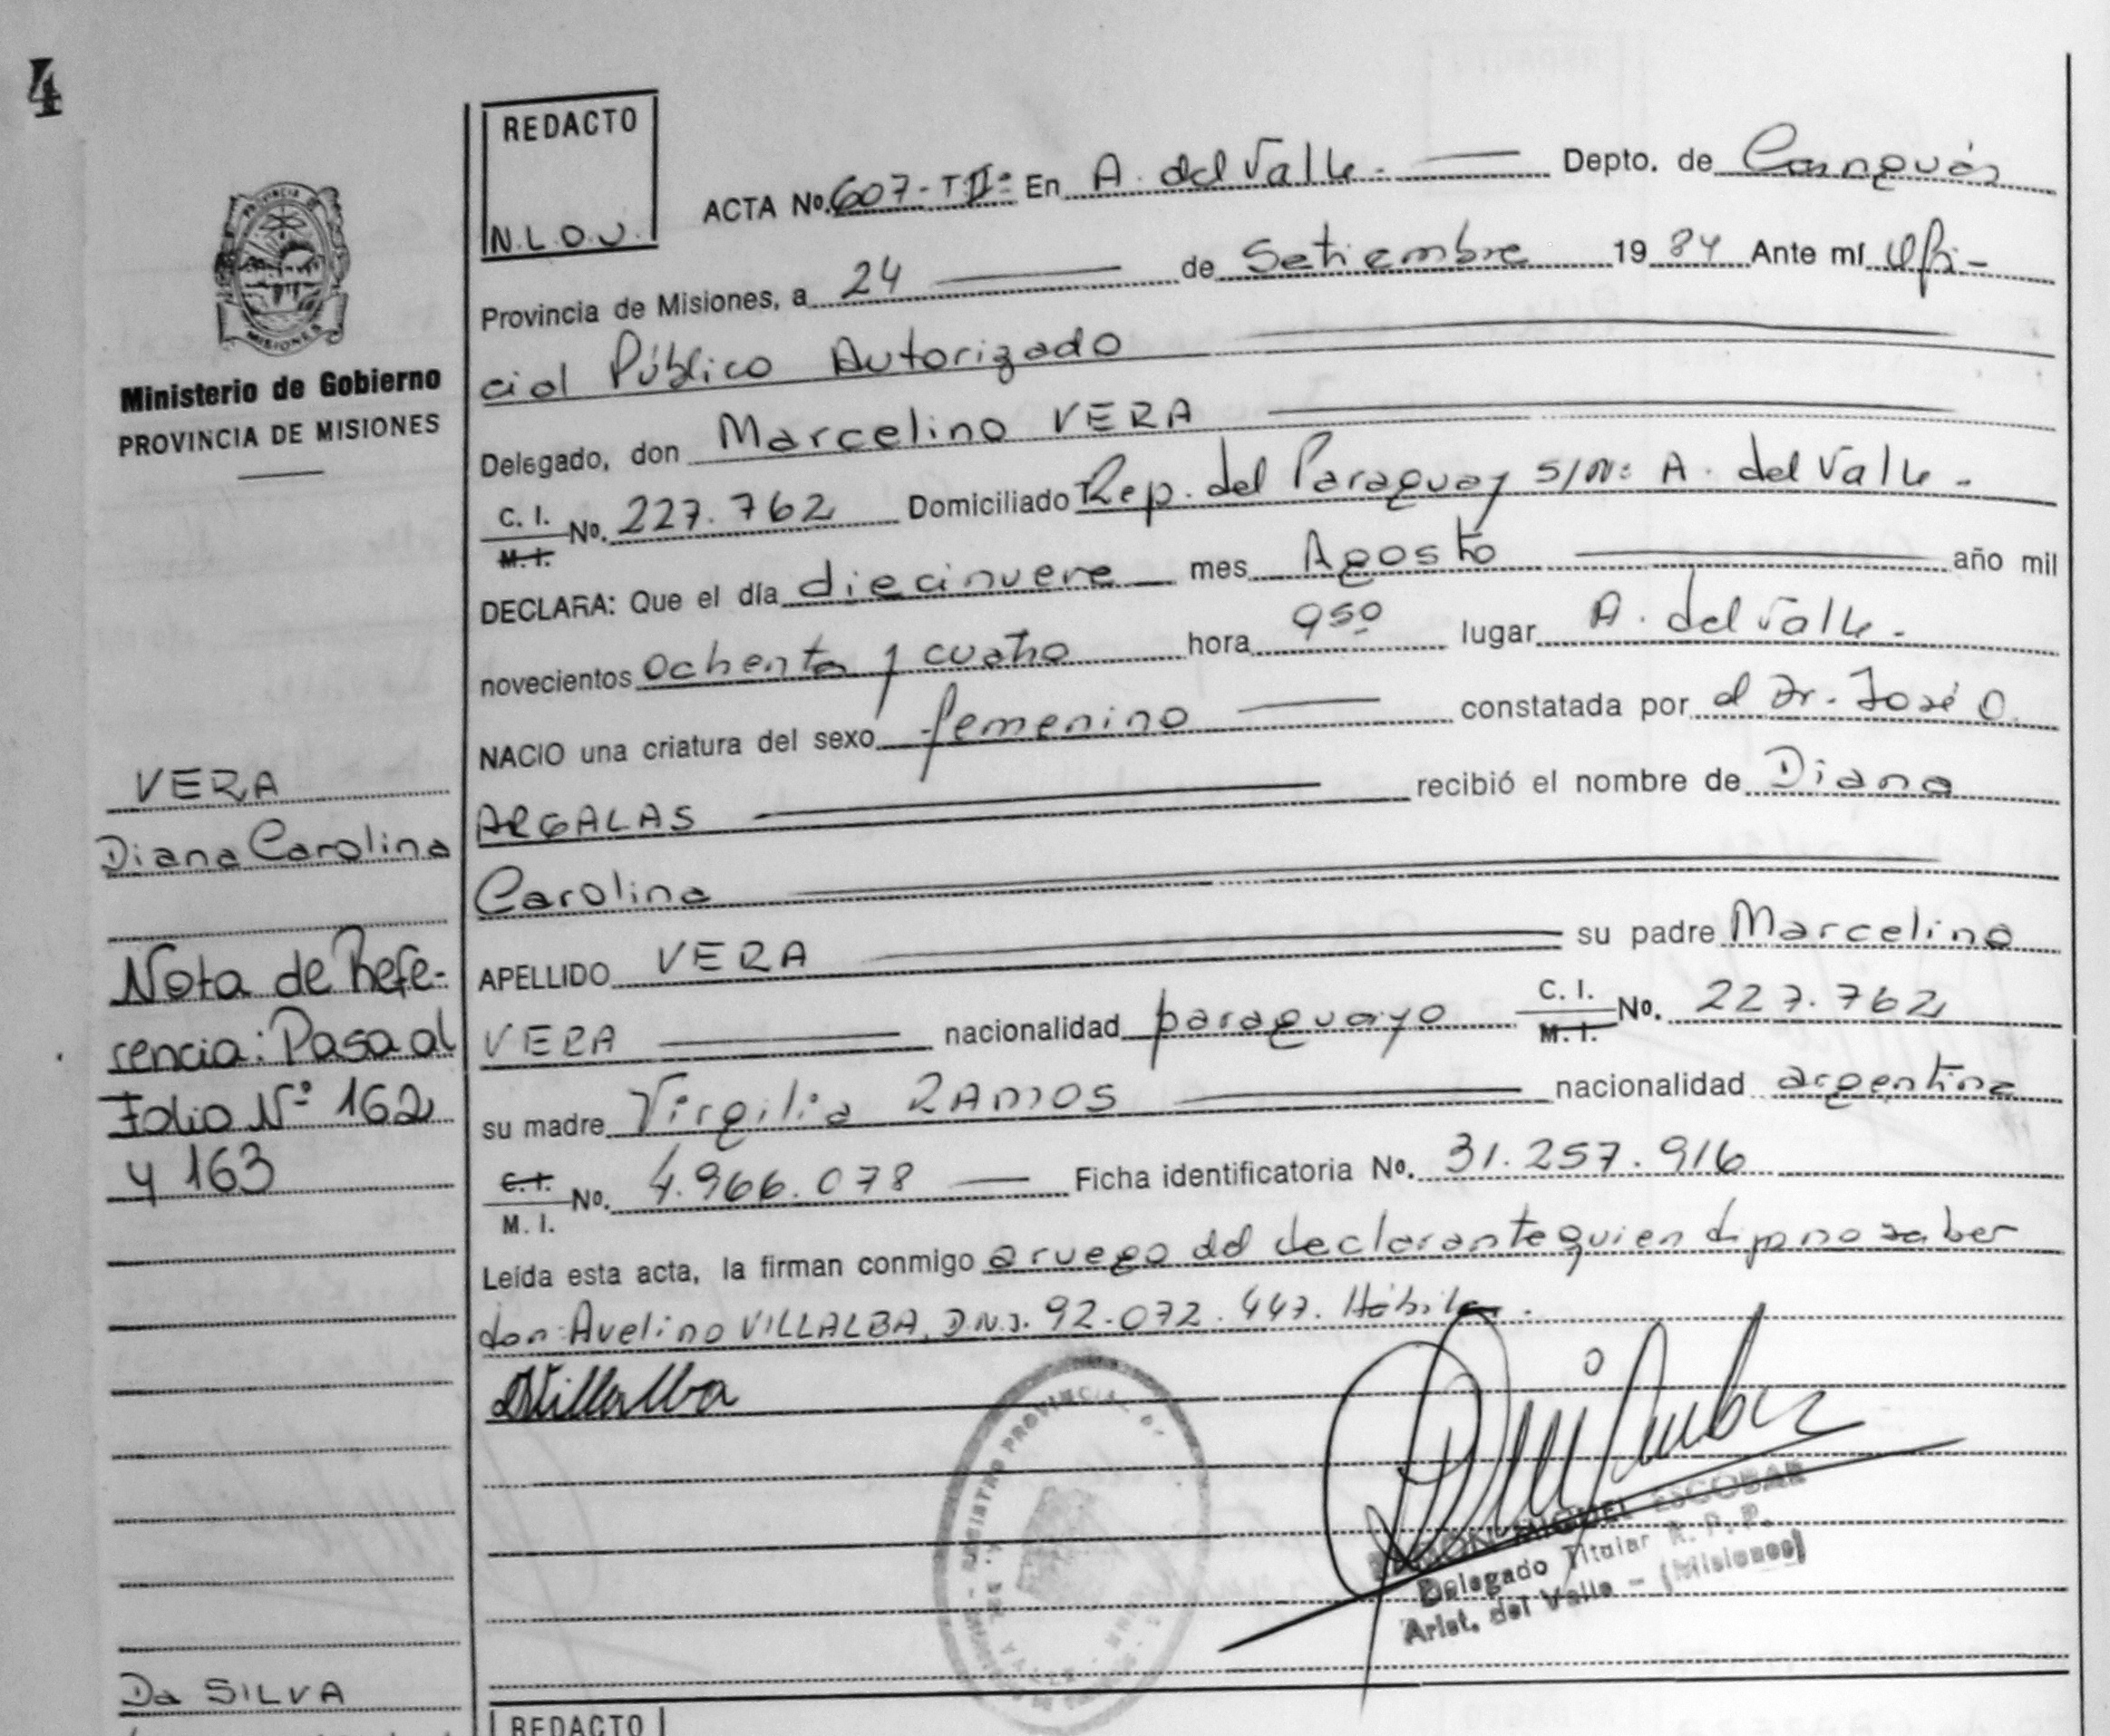 4
REDACTO
N.L.O.J.
ACTA No. 607-T II° En A. del Valle.- Depto. de Cainguás
Provincia de Misiones, a 24 de Setiembre 1984 Ante mí Ofi-
cial Público Autorizado
Delegado, don Marcelino VERA
C. I. M. I. No. 227.762 Domiciliado Rep. del Paraguay S/N° A. del Valle -
DECLARA: Que el día diecinueve mes Agosto año mil
novecientos ochenta y cuatro hora 9 50 lugar A. del Valle.-
NACIO una criatura del sexo femenino constatada por el Dr. José O.
ARGALAS recibió el nombre de Diana
Carolina
APELLIDO VERA su padre Marcelino
VERA nacionalidad paraguayo C. I. M. I. No. 227.762
su madre Virgilia RAMOS nacionalidad argentina
C. I. M. I. No. 4.966.078 Ficha identificatoria No. 31.257.916
Leída esta acta, la firman conmigo a ruego del declarante quien dijo no saber
don: Avelino VILLALBA, D.N.I. 92.072.447. Hábil.
AVillalba
RAMON MIGUEL ESCOBAR
Delegado Titular R. P. P.
Arist. del Valle - (Misiones)
REGISTRO PROVINCIAL DE
PROVINCIA DE
MISIONES
Ministerio de Gobierno
PROVINCIA DE MISIONES
VERA
Diana Carolina
Nota de Refe-
rencia: Pasa al
Folio N° 162
y 163
Da SILVA
REDACTO